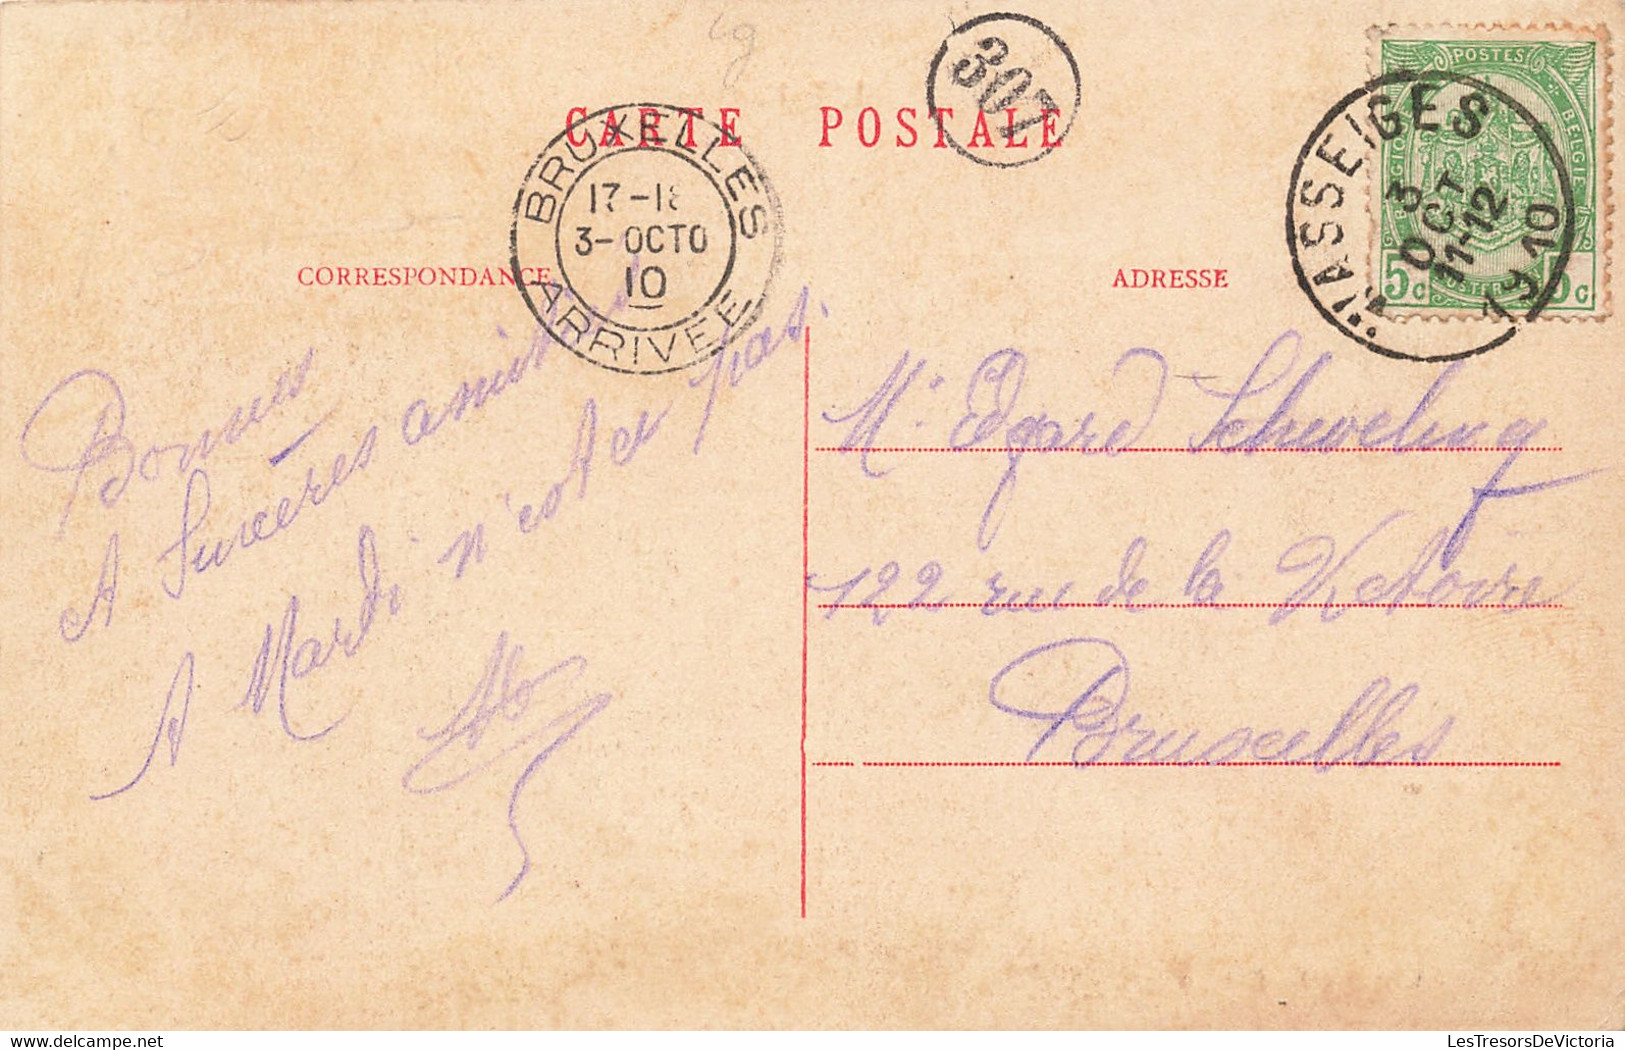 CARTE POSTALE
307
BRUXELLES
17-18
3-OCTO
10
ARRIVEE
WASSEIGES
3 OCT
11-12
1910
POSTES
BELGIQUE
BELGIE
5c 5c
CORRESPONDANCE
ADRESSE
Bonnes
& Sincères amitiés
A Mardi n'est ce pas.
Mr Edgard
122 rue de la Victoire
Bruxelles
LesTresorsDeVictoria